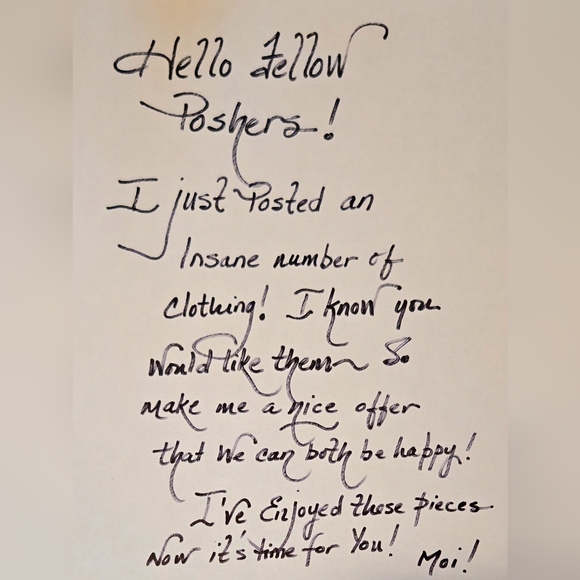 Hello Fellow
Poshers!
I just Posted an
Insane number of
Clothing! I know you
Would like them~ So
make me a nice offer
that We can both be happy!
I've Enjoyed these pieces
Now it's time for You! Moi!